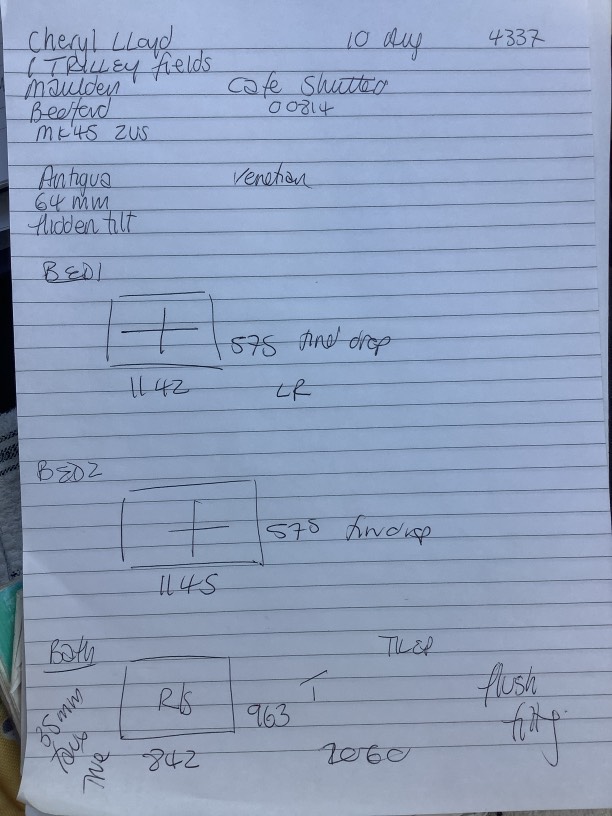 Cheryl Lloyd 10 Aug 4337
1 TRILLEY fields
Maulden Cafe Shutter
Bedford 00814
MK45 2US
Antigua Venetian
64 mm
Hidden tilt
BED1
575 find drop
1142 LR
BED2
575 fin drop
1145
Bath TILED
R/S flush
963 fittg.
35mm
842 2060